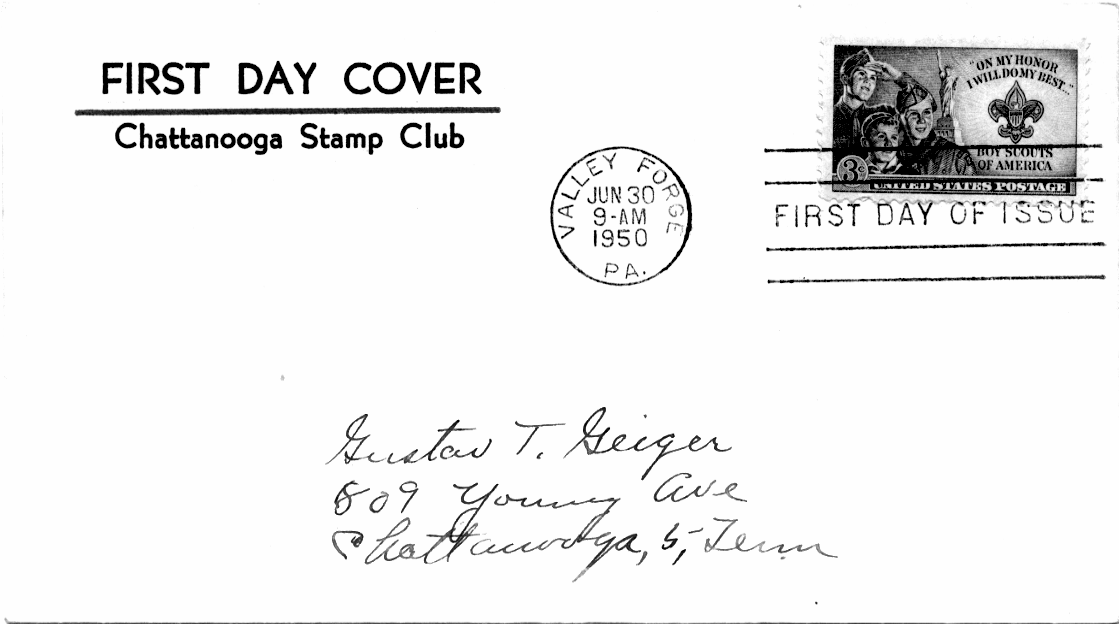 FIRST DAY COVER
Chattanooga Stamp Club
VALLEY FORGE
JUN 30
9-AM
1950
PA.
"ON MY HONOR
I WILL DO MY BEST..."
BOY SCOUTS
OF AMERICA
3¢
UNITED STATES POSTAGE
FIRST DAY OF ISSUE
Gustav T. Geiger
809 Young Ave
Chattanooga, 5, Tenn